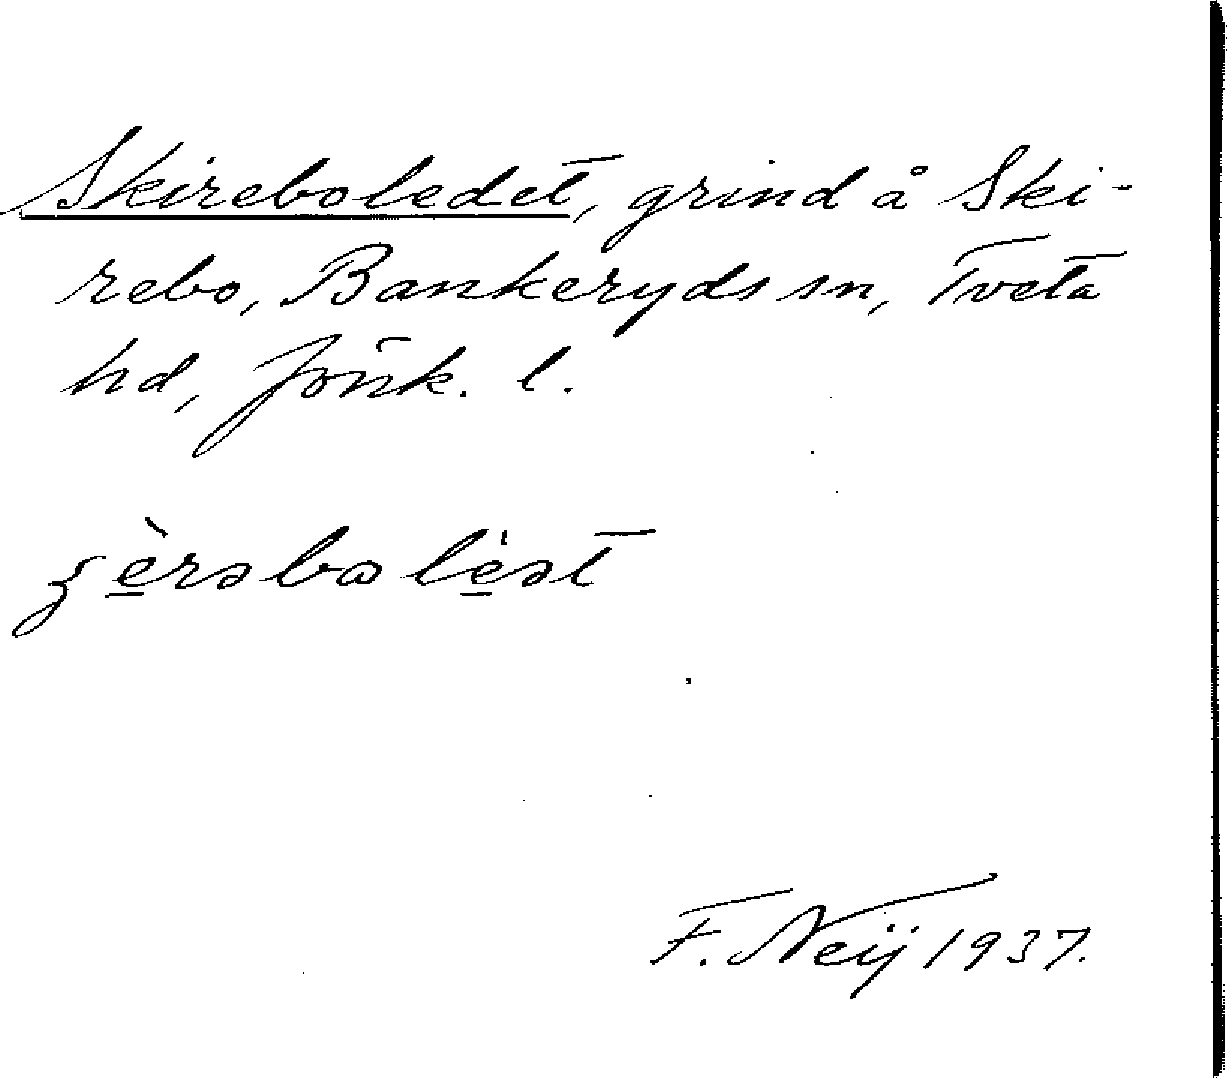 Skireboledet, grind å Ski-
rebo, Bankeryds sn, Tveta
hd, Jönk. l.
ʒèrəbɷ lėət
F. Neij 1937.